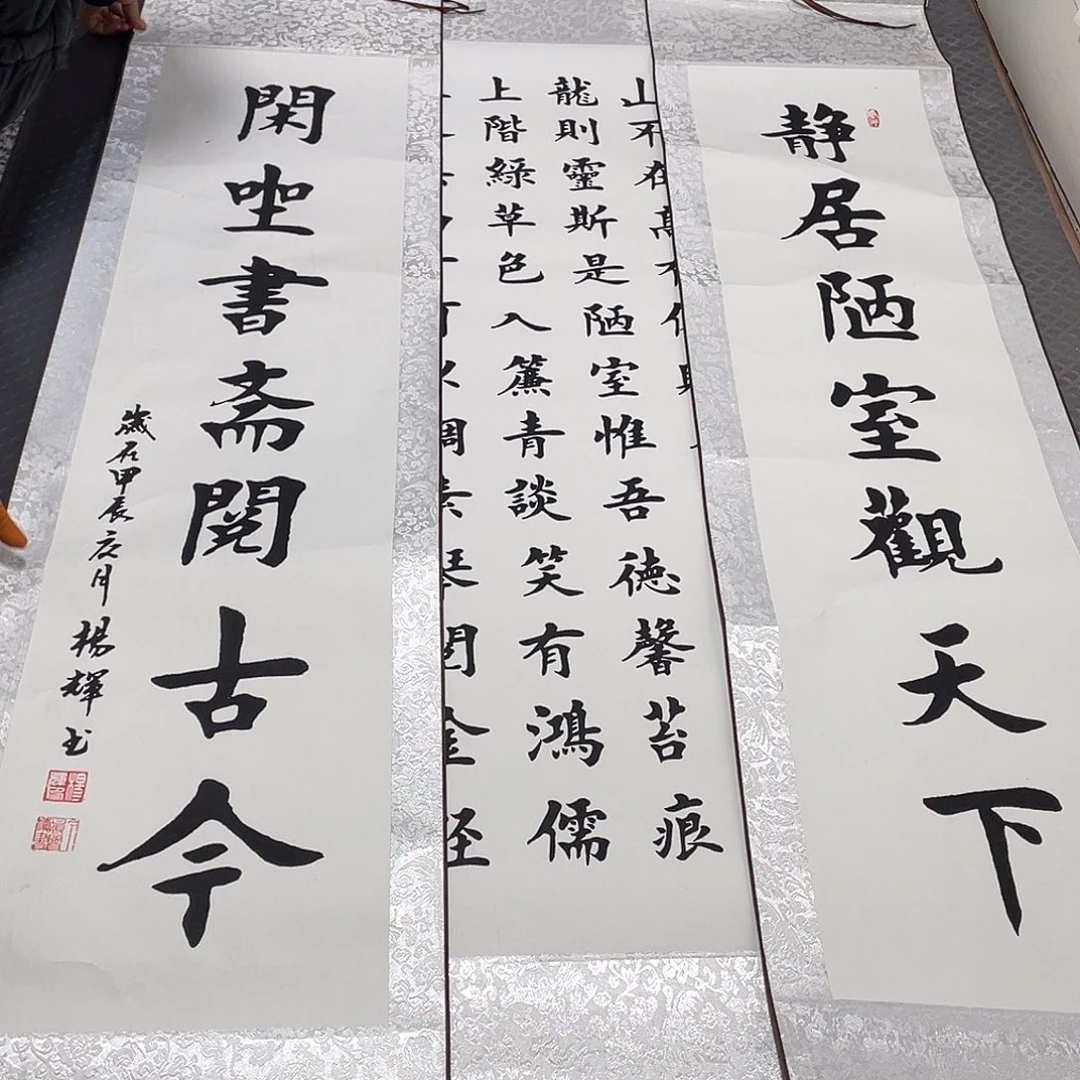 静居陋室觀天下
山不在高有仙則
龍則靈斯是陋室惟吾德馨苔痕
上階綠草色入簾青談笑有鴻儒
可以調素琴閱金經
閑坐書斋閲古今
歲在甲辰月楊輝书